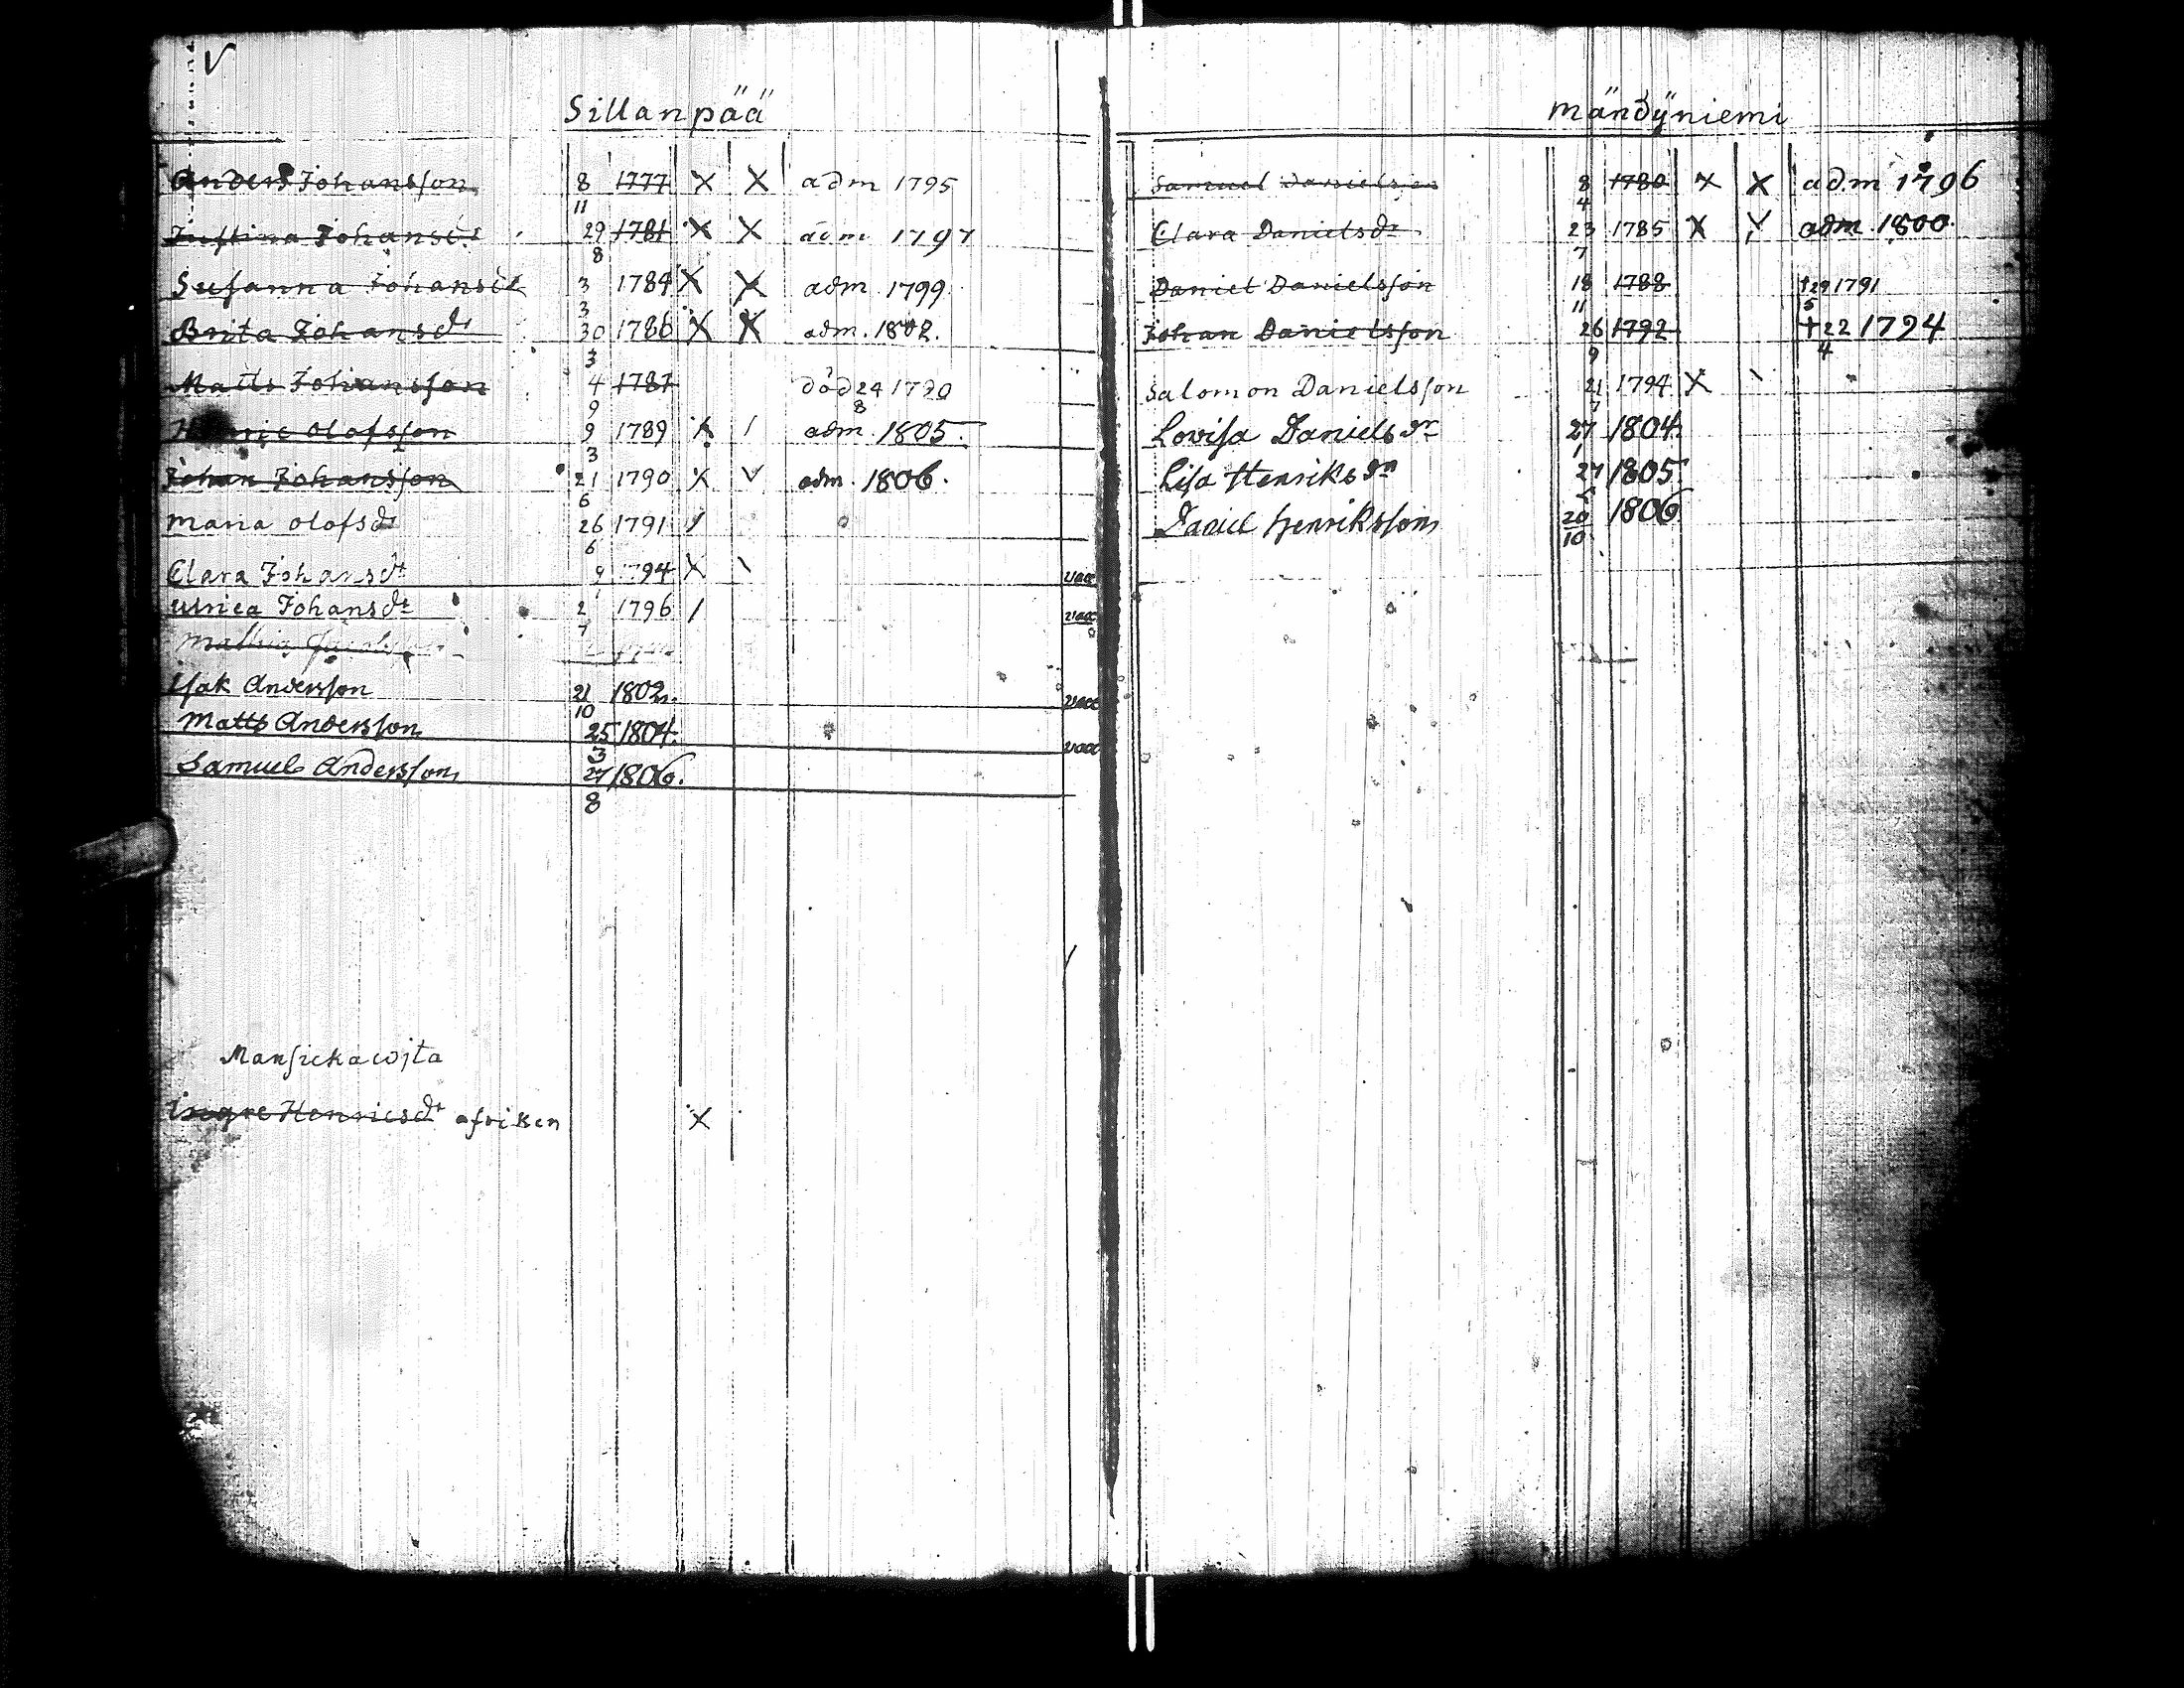 V
Sillanpää
Anders Johansson 8/11 1777 X X adm 1795
Justina Johansdr 29/8 1781 X X adm 1797
Susanna Johansdr 3/3 1784 X X adm 1799
Brita Johansdr 30/3 1786 X X adm. 1802.
Matts Johansson 4/9 1787 död 24/8 1790
Henric Olofsson 9/3 1789 X / adm 1805.
Johan Johansson 21/6 1790 X V adm. 1806.
Maria Olofsdr 26/6 1791 /
Clara Johansdr 9/1 1794 X \ vacc
Ulrica Johansdr 2/7 1796 / vacc
Isak Andersson 21/10 1802. vacc
Matts Andersson 25/3 1804. vacc
Samuel Andersson 27/8 1806.
Mansickawjta
Ingre Henricsdr afsiken X
Mändÿniemi
Samuel Danielsson 8/4 1780 X X adm 1796
Clara Danielsdr 23/7 1785 X V adm. 1800.
Daniel Danielsson 18/11 1788 †29/5 1791
Johan Danielsson 26/9 1792 †22/4 1794
Salomon Danielsson 21/7 1794 X \
Lovisa Danielsdr 27/1 1804.
Lisa Henriksdr 27 1805.
Daniel Henriksson 20/10 1806